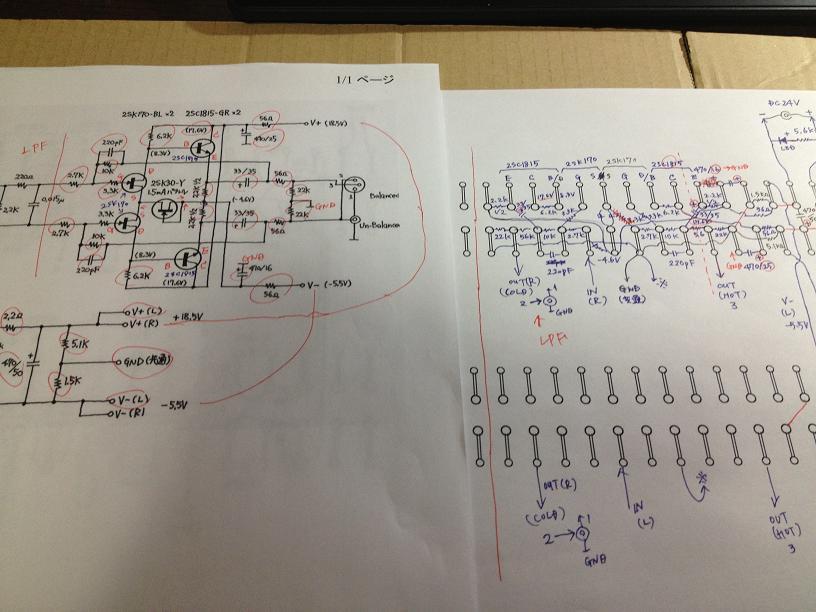 1/1 ページ
2SK170-BL ×2 2SC1815-GR ×2
LPF
220Ω
2.2K
0.015μ
2.7K
220pF
10K
3.3K
6.2K
(17.6V)
(8.3V)
2SK30-Y
(-4.6V)
33/35
33/35
56Ω
470/25
V+ (18.5V)
56Ω
22K
22K
GND
56Ω
Balanced
Un-Balance
2.7K
3.3K
10K
220pF
6.2K
(8.3V)
(17.6V)
GND
470/16
56Ω
V- (-5.5V)
2.2Ω
V+(L)
V+(R)
+18.5V
470/50
5.1K
1.5K
GND(共通)
V-(L)
V-(R)
-5.5V
DC24V
5.6K
LED
2SC1815 2SK170 2SK170 2SC1815
E C B/D G S S G D/B C E
470/16
GND
2.2K
V2
6.2K
33/35
1.5K
56Ω
22K 56K 10K 2.7K
2.7K 10K
220pF
-4.6V
220pF
GND
470/25
5.1K
OUT(R)
(COLD)
2
1
GND
IN
(R)
GND
※
OUT
(HOT)
3
V-
(L)
-5.5V
LPF
OUT(R)
(COLD)
2
1
GND
IN
(L)
※
OUT
(HOT)
3